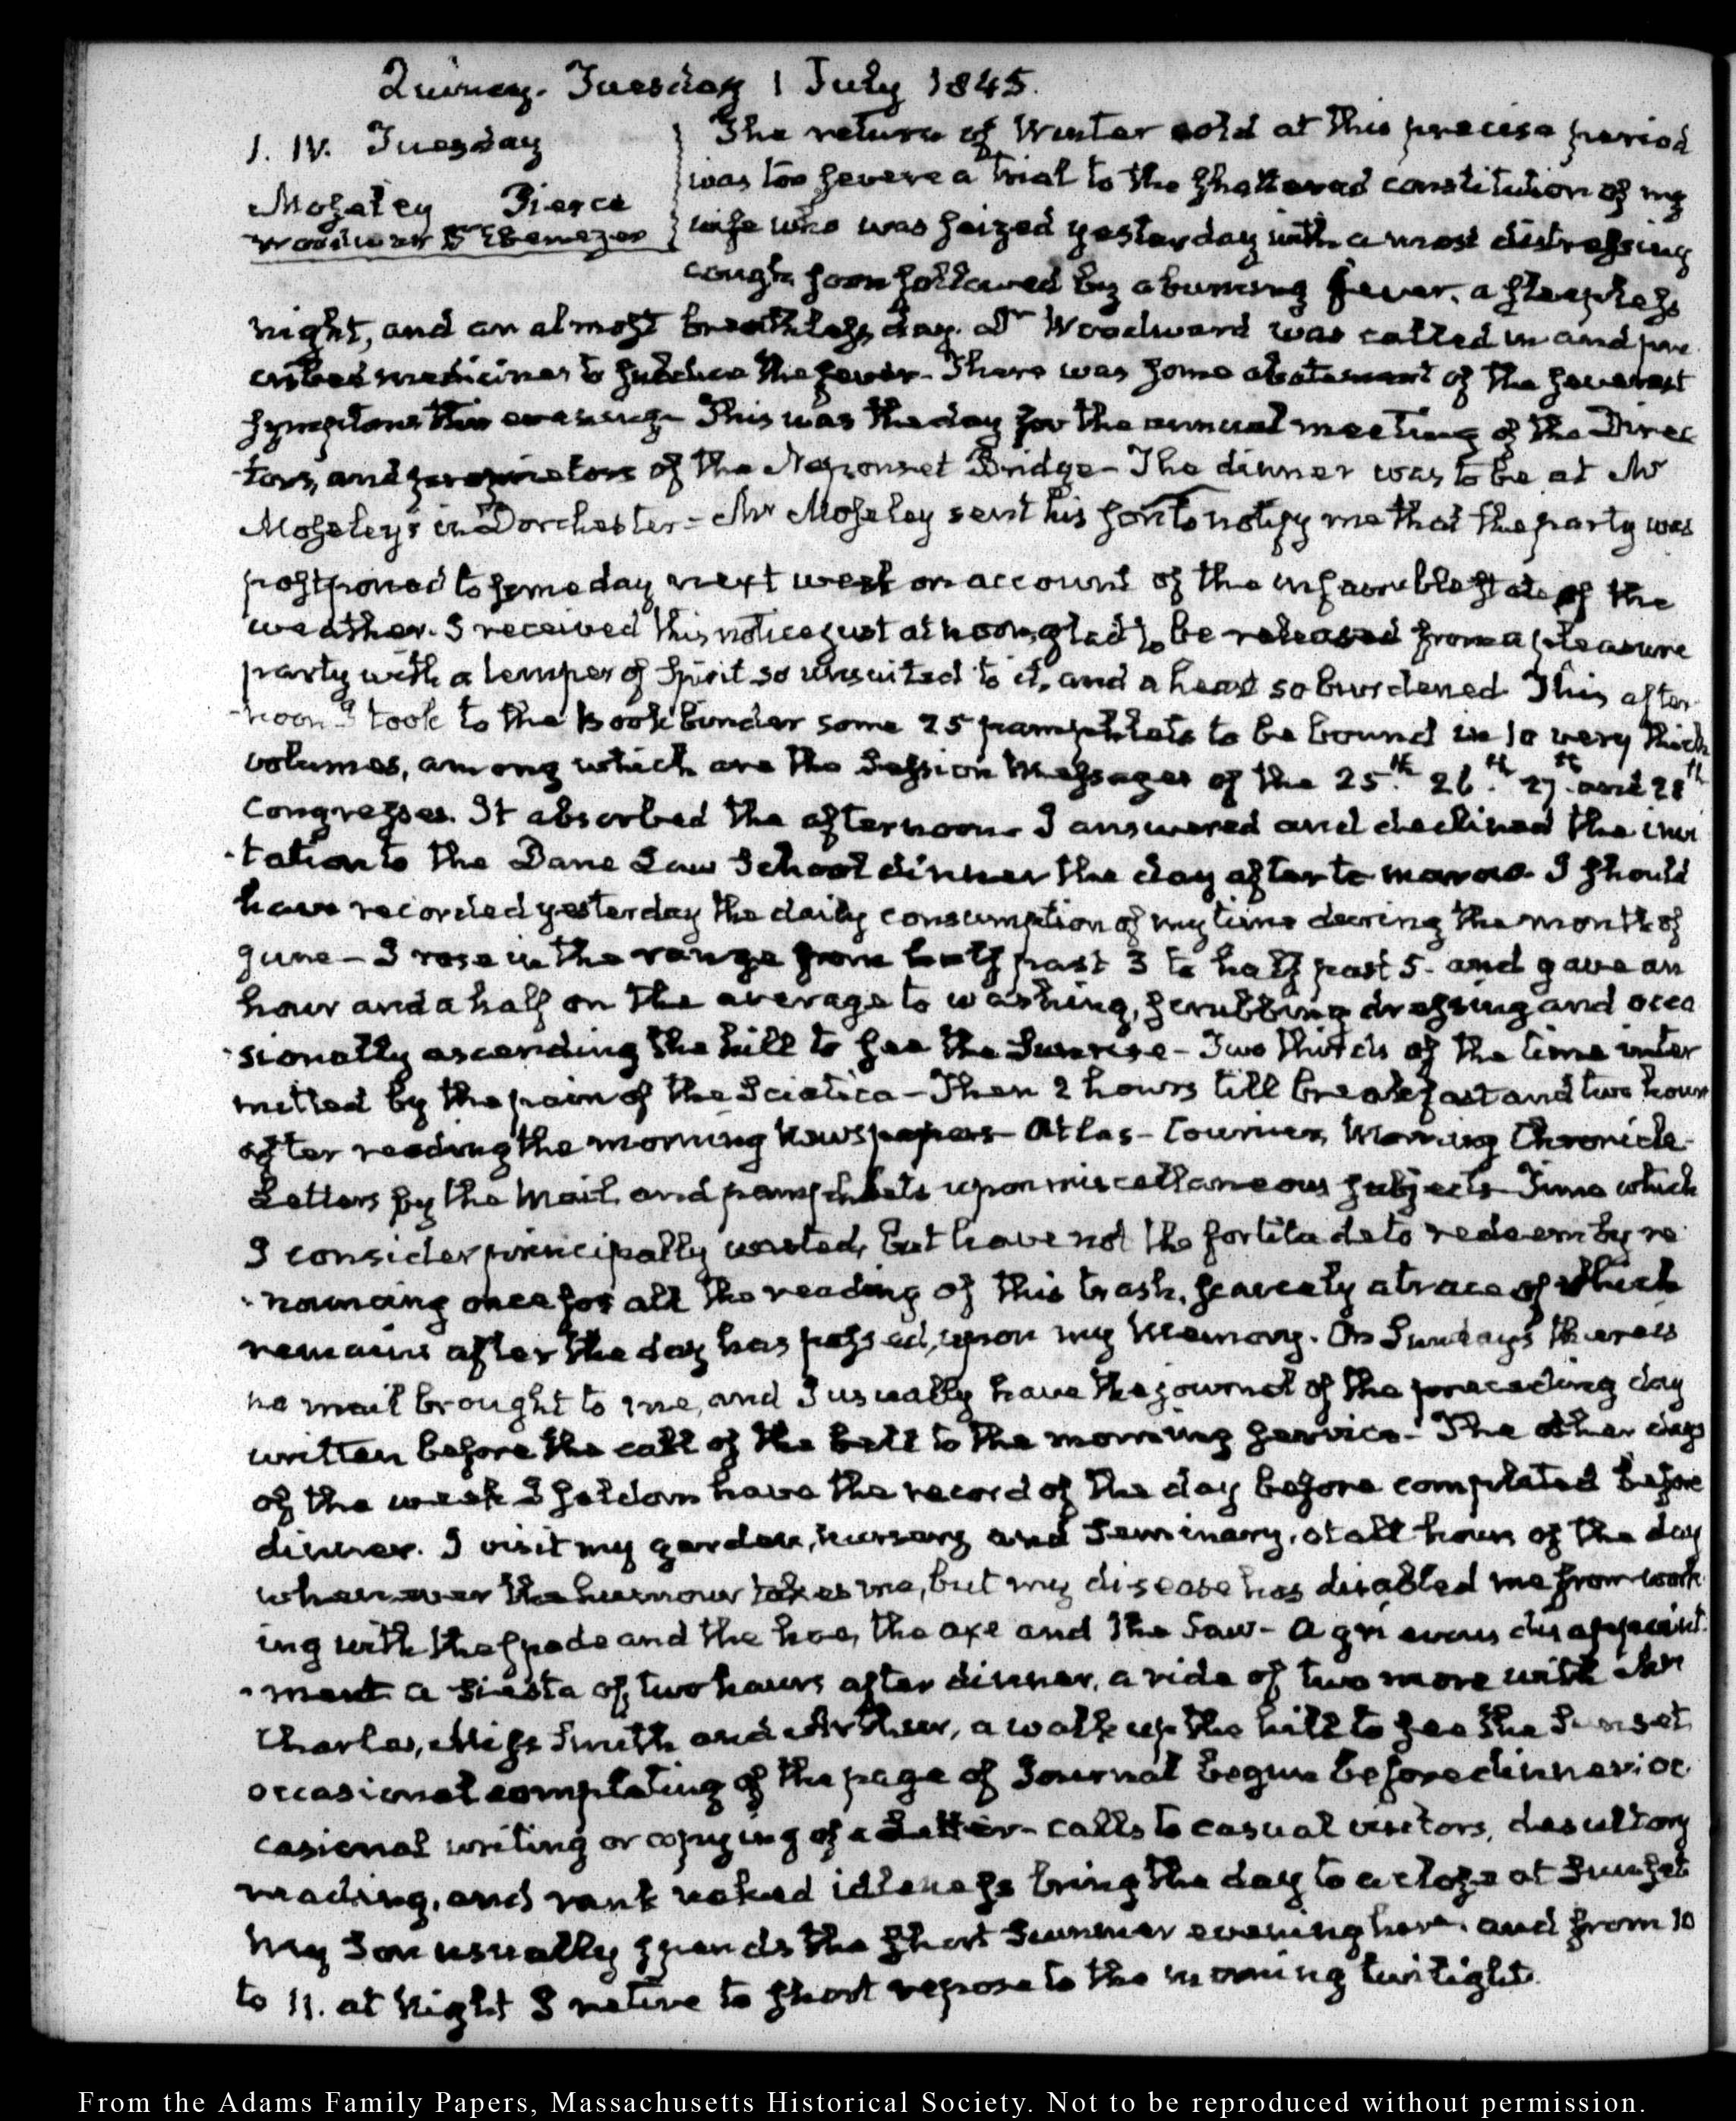 Quincy. Tuesday 1 July 1845.
1. IV. Tuesday
Moseley Pierce
Woodward Dr Ebenezer
The return of Winter cold at this precise period
was too severe a trial to the shattered constitution of my
wife who was seized yesterday with a most distressing
cough soon followed by a burning fever, a sleepless
night, and an almost breathless day. Dr Woodward was called in and pre
cribed medicines to subdue the fever- There was some abatement of the severest
symptoms this evening- This was the day for the annual meeting of the Direc
-tors, and proprietors of the Neponset Bridge- The dinner was to be at Mr
Moseley's in Dorchester- Mr Moseley sent his son to notify me that the party was
postponed to some day next week on account of the unfavorable state of the
weather. I received this notice just at noon, glad to be released from a pleasure
party with a temper of Spirit so unsuited to it, and a heart so burdened This after
-noon I took to the bookbinder some 25 pamphlets to be bound in 10 very thick
volumes, among which are the Session Messages of the 25th. 26.th 27th and 28th
Congresses. It absorbed the afternoon- I answered and declined the invi
-tation to the Dane Law School dinner the day after to-morrow- I should
have recorded yesterday the daily consumption of my time during the month of
June- I rose in the range from half past 3 to half past 5- and gave an
hour and a half on the average to washing, scrubbing dressing and occa
-sionally ascending the hill to see the Sunrise- Two thirds of the time inter
mitted by the pain of the Sciatica- Then 2 hours till breakfast and two hours
after reading the morning Newspapers- Atlas- Courier, Morning Chronicle-
Letters by the Mail, and pamphlets upon miscellaneous subjects- Time which
I consider principally wasted, but have not the fortitude to redeem by re
-nouncing once for all the reading of this trash, scarcely a trace of which
remains after the day has passed, upon my Memory. On Sundays there is
no mail brought to me, and I usually have the journal of the preceding day
written before the call of the bell to the morning service- The other days
of the week I seldom have the record of the day before completed before
dinner. I visit my garden, nursery and Seminary, at all hours of the day
whenever the humour takes me, but my disease has disabled me from work
ing with the spade and the hoe, the axe and the Saw- a grievous disappoint
-ment- a Siesta of two hours after dinner, a ride of two more with Mrs
Charles, Miss Smith and Arthur, a walk up the hill to see the Sunset,
occasional completing of the page of Journal begun before dinner, oc
casional writing or copying of a Letter- calls to casual visitors, desultory
reading, and rank naked idleness bring the day to a close at Sunset
My Son usually spends the short Summer evening here, and from 10
to 11. at Night I retire to short repose to the morning twilight.
From the Adams Family Papers, Massachusetts Historical Society. Not to be reproduced without permission.